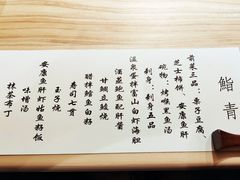 鮨青
前菜三品：栗子豆腐
芝士柿饼 安康鱼肝
碗物：烤喉黑鱼汤
刺身：刺身五品
温泉蛋拌富山白虾海胆
酒蒸鲍鱼配肝酱
甘鲷立鳞烧
醋拌鱼白籽
寿司七贯
玉子烧
安康鱼肝虾鱼饭
味增汤
抹茶布丁